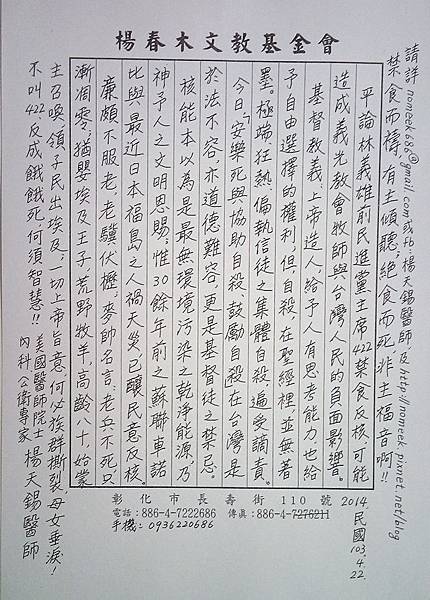 楊春木文教基金會
請詳 nomeek686@gmail.com 或fb楊天錫醫師及 http://nomeek.pixnet.net/blog
禁食而禱,有主傾聽;絕食而死非主福音啊!!
平論林義雄前民進黨主席422禁食反核,可能
造成義光教會牧師與台灣人民的負面影響。
基督教義,上帝造人,給予人有思考能力,也給
予自由選擇的權利,但自殺,在聖經裡,並無著
墨。極端,狂熱,偏執信徒之集體自殺,遍受譴責。
今日,安樂死與協助自殺、鼓勵自殺在台灣是
於法不容,亦道德難容,更是基督徒之禁忌。
核能本以為是最無環境污染之乾淨能源,乃
神予人之文明恩賜,惟30餘年前之蘇聯車諾
比與最近日本福島之人禍天災,已釀民意反核。
廉頗不服老,老驥伏櫪,麥帥名言:老兵不死,只
漸凋零;猶嬰埃及王子,荒野牧羊,高齡八十,始蒙
主召喚,領子民出埃及,一切上帝旨意,何必族群撕裂,母女垂淚!
不叫422,反成餓餓死,何須智慧!!
美國醫師院士
內科公衛專家 楊天錫醫師
彰化市長壽街110號
電話:886-4-7222686 傳真:886-4-7276211
手機:0936220686
2014.
民國
103.
4.
22.